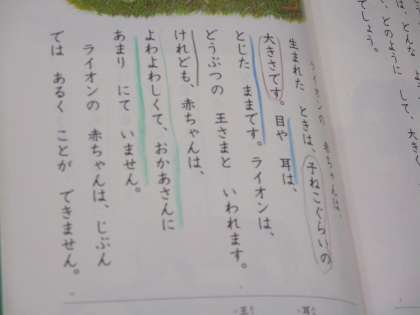 ライオンの 赤ちゃんは、
生まれた ときは、子ねこぐらいの
大きさです。目や 耳は、
とじた ままです。ライオンは、
どうぶつの 王さまと いわれます。
けれども、赤ちゃんは、
よわよわしくて、おかあさんに
あまり にて いません。
ライオンの 赤ちゃんは、じぶん
では あるく ことが できません。
耳
王